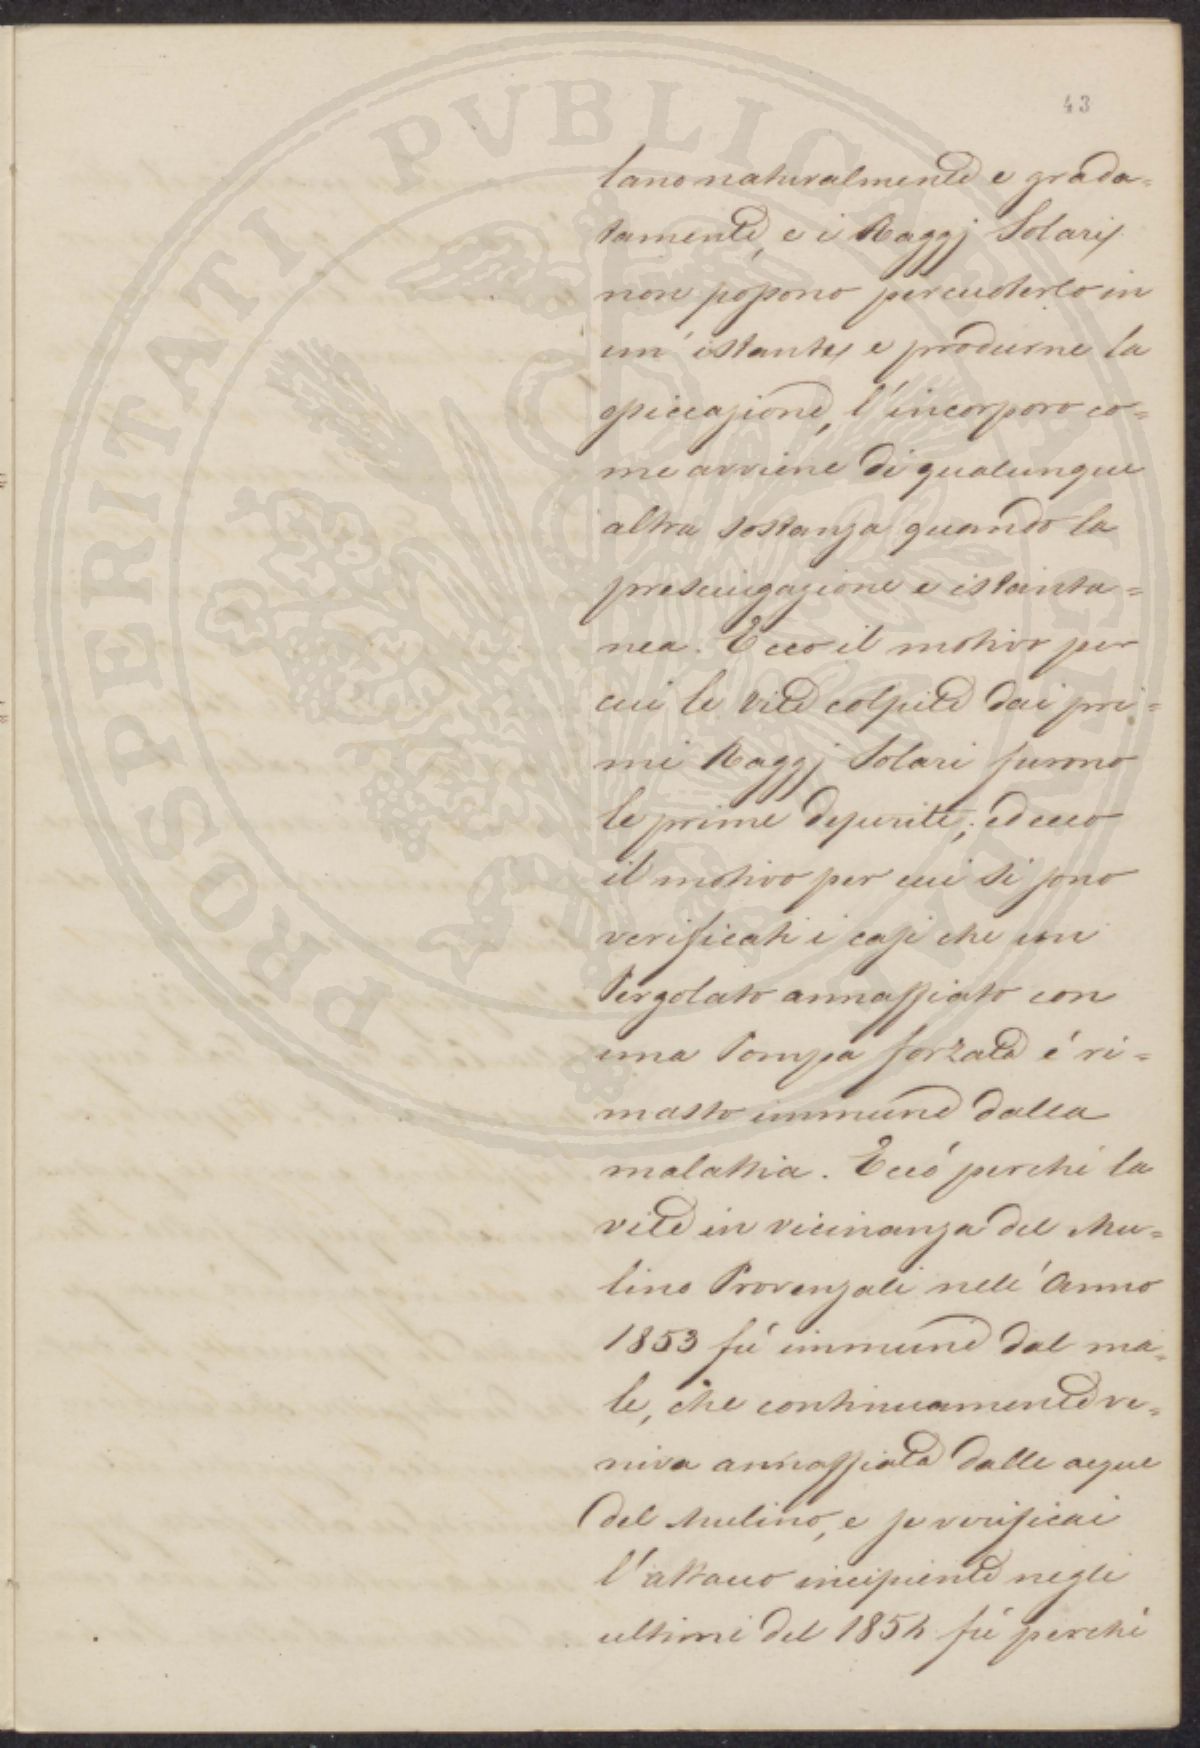 43
lano naturalmente e grada=
tamente, e i Raggj Solari
non possono percuoterlo in
un' istante e produrne la
essiccazione, l'incorporo co=
me avviene di qualunque
altra sostanza quando la
prosciugazione e istanta=
nea. Ecco il motivo per
cui le vite colpite dai pri=
mi Raggj Solari furono
le prime deperite; ed ecco
il motivo per cui si sono
verificati i casi che un
Pergolato annaffiato con
una Pompa forzata é ri=
masto immune dalla
malattia. Eccó perché la
vite in vicinanza del Mu=
lino Provenzali nell' Anno
1853 fú immune dal ma=
le, che continuamente ve=
niva annaffiata dalle acque
del Mulino, e se verificai
l'attacco incipiente negli
ultimi del 1854 fú perché
PROSPERITATI PVBLICAE AVGENDAE